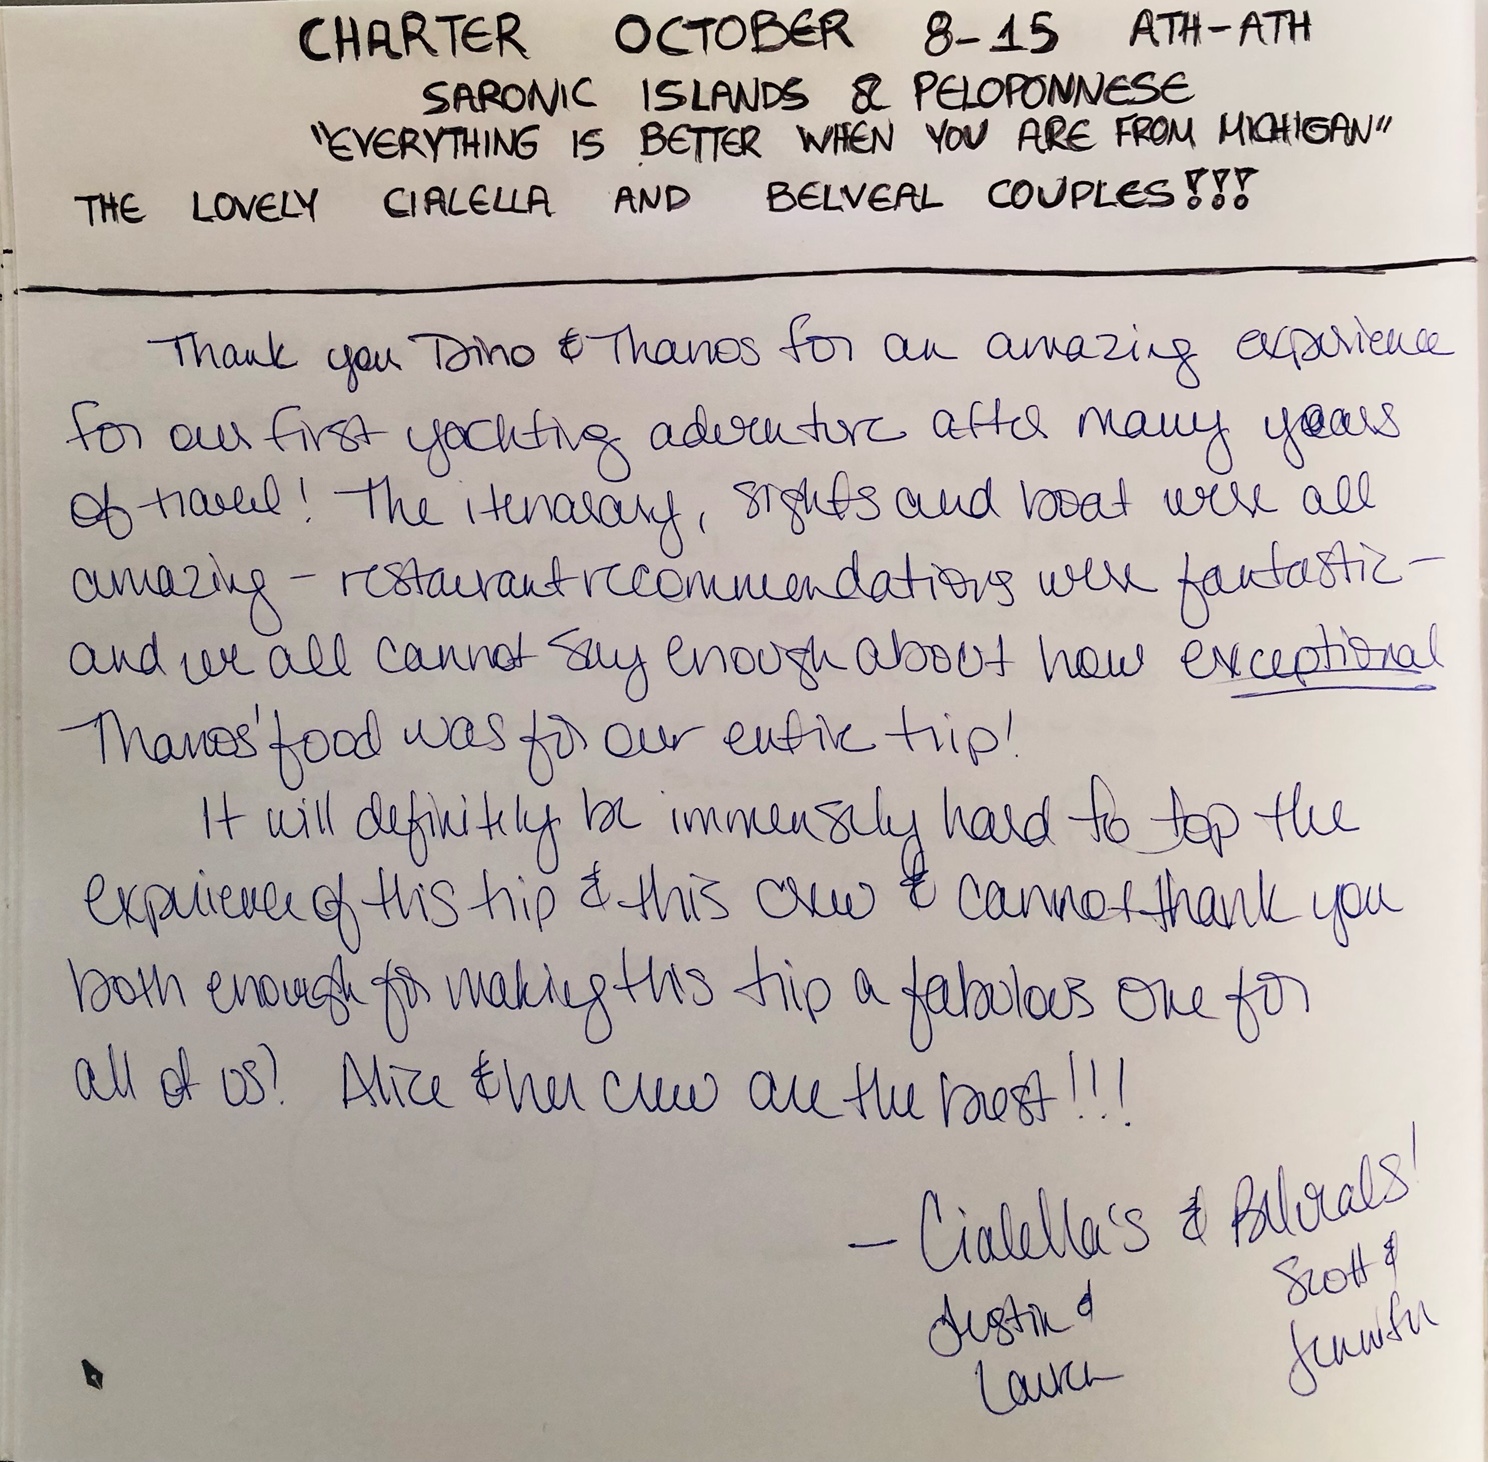 CHARTER OCTOBER 8-15 ATH-ATH
SARONIC ISLANDS & PELOPONNESE
"EVERYTHING IS BETTER WHEN YOU ARE FROM MICHIGAN"
THE LOVELY CIALELLA AND BELVEAL COUPLES!!!
Thank you Dino & Thanos for an amazing experience
for our first yachting adventure after many years
of travel! The itenarary, sights and boat were all
amazing - restaurant recommendations were fantastic -
and we all cannot say enough about how exceptional
Thanos' food was for our entire trip!
It will definitely be immensely hard to top the
experience of this trip & this crew & cannot thank you
both enough for making this trip a fabulous one for
all of us! Alice & her crew are the best!!!
- Cialella's & Belveals!
Justin & Scott &
Lauren Jennifer